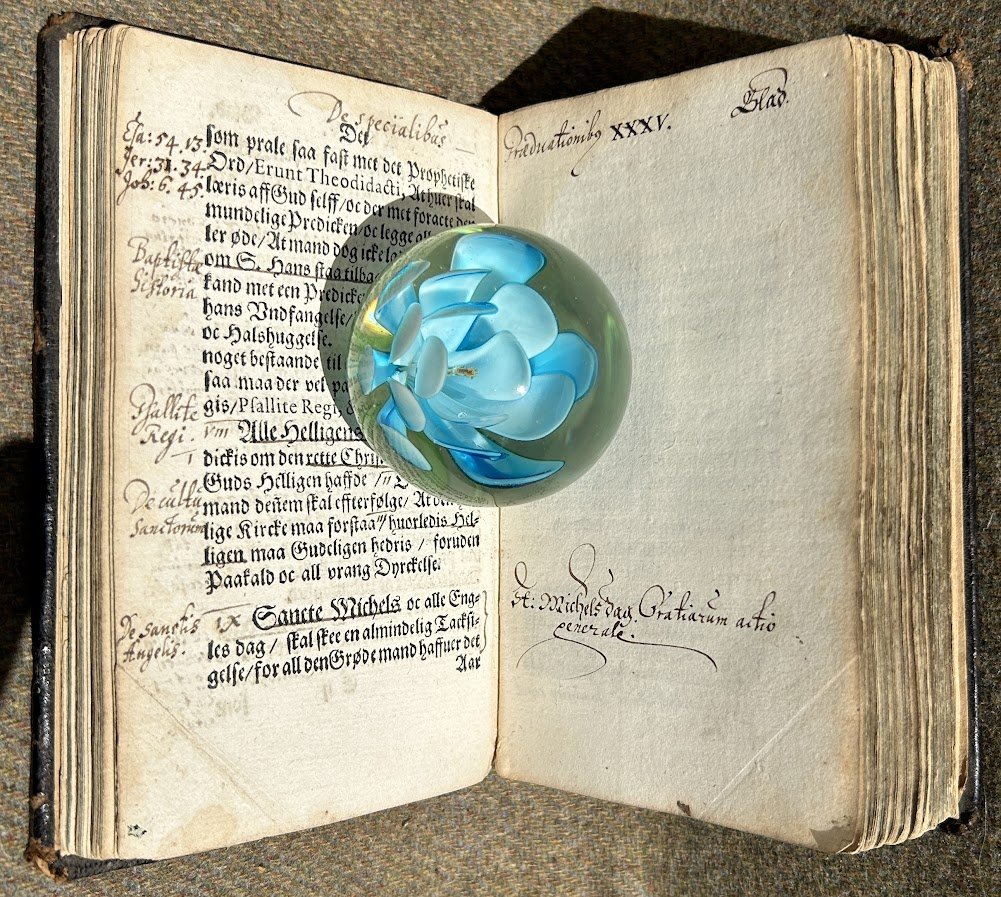 De specialibus
Det
Esa: 54. 13.
Jer: 31. 34.
Joh: 6. 45.
som prale saa fast met det Prophetiske
Ord/Erunt Theodidacti, At huer skal
læris aff Gud selff/oc der met foracte den
mundelige Predicken/oc legge all
ler øde/At mand dog icke
Baptistæ
historia
om S. Hans staa tilba
kand met een Predicke
hans Vndfangelse/
oc Halshuggelse.
noget bestaande til
saa maa der vel
Psallite
Regi.
gis/Psallite Regi,
VIII Alle Helligens
dickis om den rette Chri
De cultu
Sanctorum
Guds Helligen haffde
mand deñem skal effterfølge/ At den
lige Kircke maa forstaa/huorledis Hel-
ligen maa Gudeligen hedris / foruden
Paakald oc all vrang Dyrckelse.
De sanctis
Angelis.
IX Sancte Michels oc alle Eng-
les dag / skal skee en almindelig Tacksi-
gelse/for all den Grøde mand haffuer det
Aar
XXXV.
Blad.
St: Michels dag, Gratiarum actio
generale.